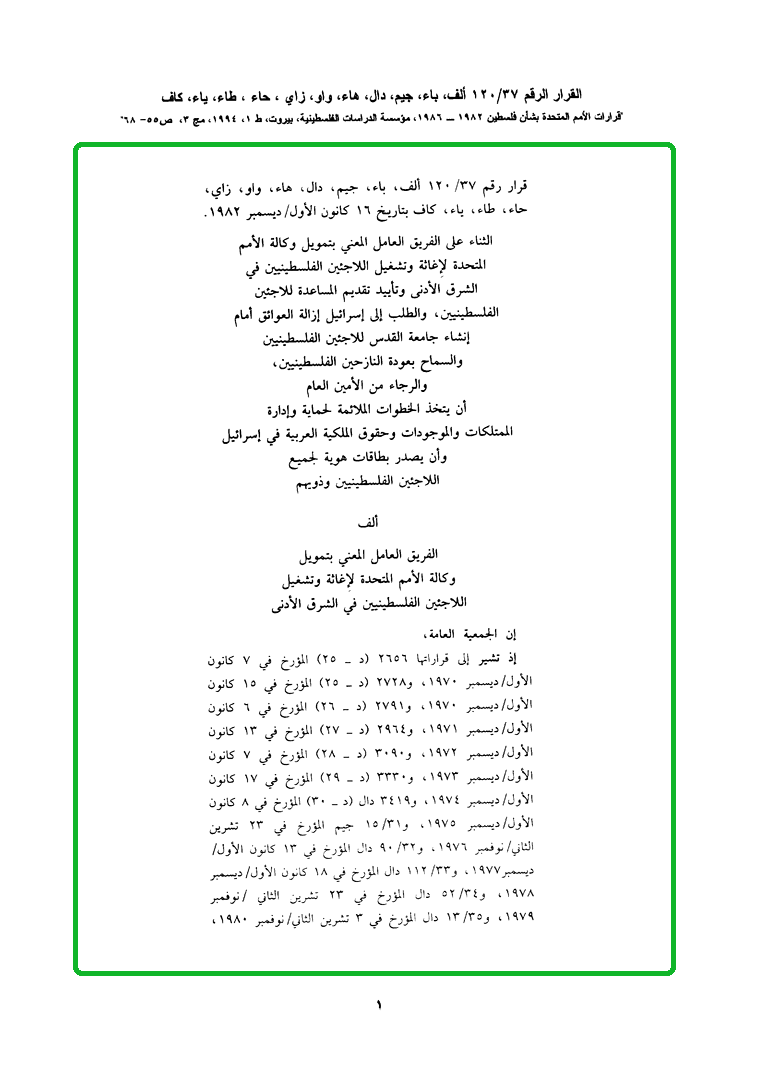 القرار الرقم ١٢٠/٣٧ ألف، باء، جيم، دال، هاء، واو، زاي ، حاء ، طاء، ياء، كاف
"قرارات الأمم المتحدة بشأن فلسطين ١٩٨٢ ــ ١٩٨٦، مؤسسة الدراسات الفلسطينية، بيروت، ط ١، ١٩٩٤، مج ٣، ص٥٥- ٦٨"
قرار رقم ١٢٠/٣٧ ألف، باء، جيم، دال، هاء، واو، زاي،
حاء، طاء، ياء، كاف بتاريخ ١٦ كانون الأول/ديسمبر ١٩٨٢.
الثناء على الفريق العامل المعني بتمويل وكالة الأمم
المتحدة لإغاثة وتشغيل اللاجئين الفلسطينيين في
الشرق الأدنى وتأييد تقديم المساعدة للاجئين
الفلسطينيين، والطلب إلى إسرائيل إزالة العوائق أمام
إنشاء جامعة القدس للاجئين الفلسطينيين
والسماح بعودة النازحين الفلسطينيين،
والرجاء من الأمين العام
أن يتخذ الخطوات الملائمة لحماية وإدارة
الممتلكات والموجودات وحقوق الملكية العربية في إسرائيل
وأن يصدر بطاقات هوية لجميع
اللاجئين الفلسطينيين وذويهم
ألف
الفريق العامل المعني بتمويل
وكالة الأمم المتحدة لإغاثة وتشغيل
اللاجئين الفلسطينيين في الشرق الأدنى
إن الجمعية العامة،
إذ تشير إلى قراراتها ٢٦٥٦ (د ـ ٢٥) المؤرخ في ٧ كانون
الأول/ديسمبر ١٩٧٠، و٢٧٢٨ (د ـ ٢٥) المؤرخ في ١٥ كانون
الأول/ديسمبر ١٩٧٠، و٢٧٩١ (د ـ ٢٦) المؤرخ في ٦ كانون
الأول/ديسمبر ١٩٧١، و٢٩٦٤ (د ـ ٢٧) المؤرخ في ١٣ كانون
الأول/ديسمبر ١٩٧٢، و٣٠٩٠ (د ـ ٢٨) المؤرخ في ٧ كانون
الأول/ديسمبر ١٩٧٣، و٣٣٣٠ (د ـ ٢٩) المؤرخ في ١٧ كانون
الأول/ديسمبر ١٩٧٤، و٣٤١٩ دال (د ـ ٣٠) المؤرخ في ٨ كانون
الأول/ديسمبر ١٩٧٥، و١٥/٣١ جيم المؤرخ في ٢٣ تشرين
الثاني/نوفمبر ١٩٧٦، و٩٠/٣٢ دال المؤرخ في ١٣ كانون الأول/
ديسمبر١٩٧٧، و١١٢/٣٣ دال المؤرخ في ١٨ كانون الأول/ديسمبر
١٩٧٨، و٥٢/٣٤ دال المؤرخ في ٢٣ تشرين الثاني /نوفمبر
١٩٧٩، و١٣/٣٥ دال المؤرخ في ٣ تشرين الثاني/نوفمبر ١٩٨٠،
١